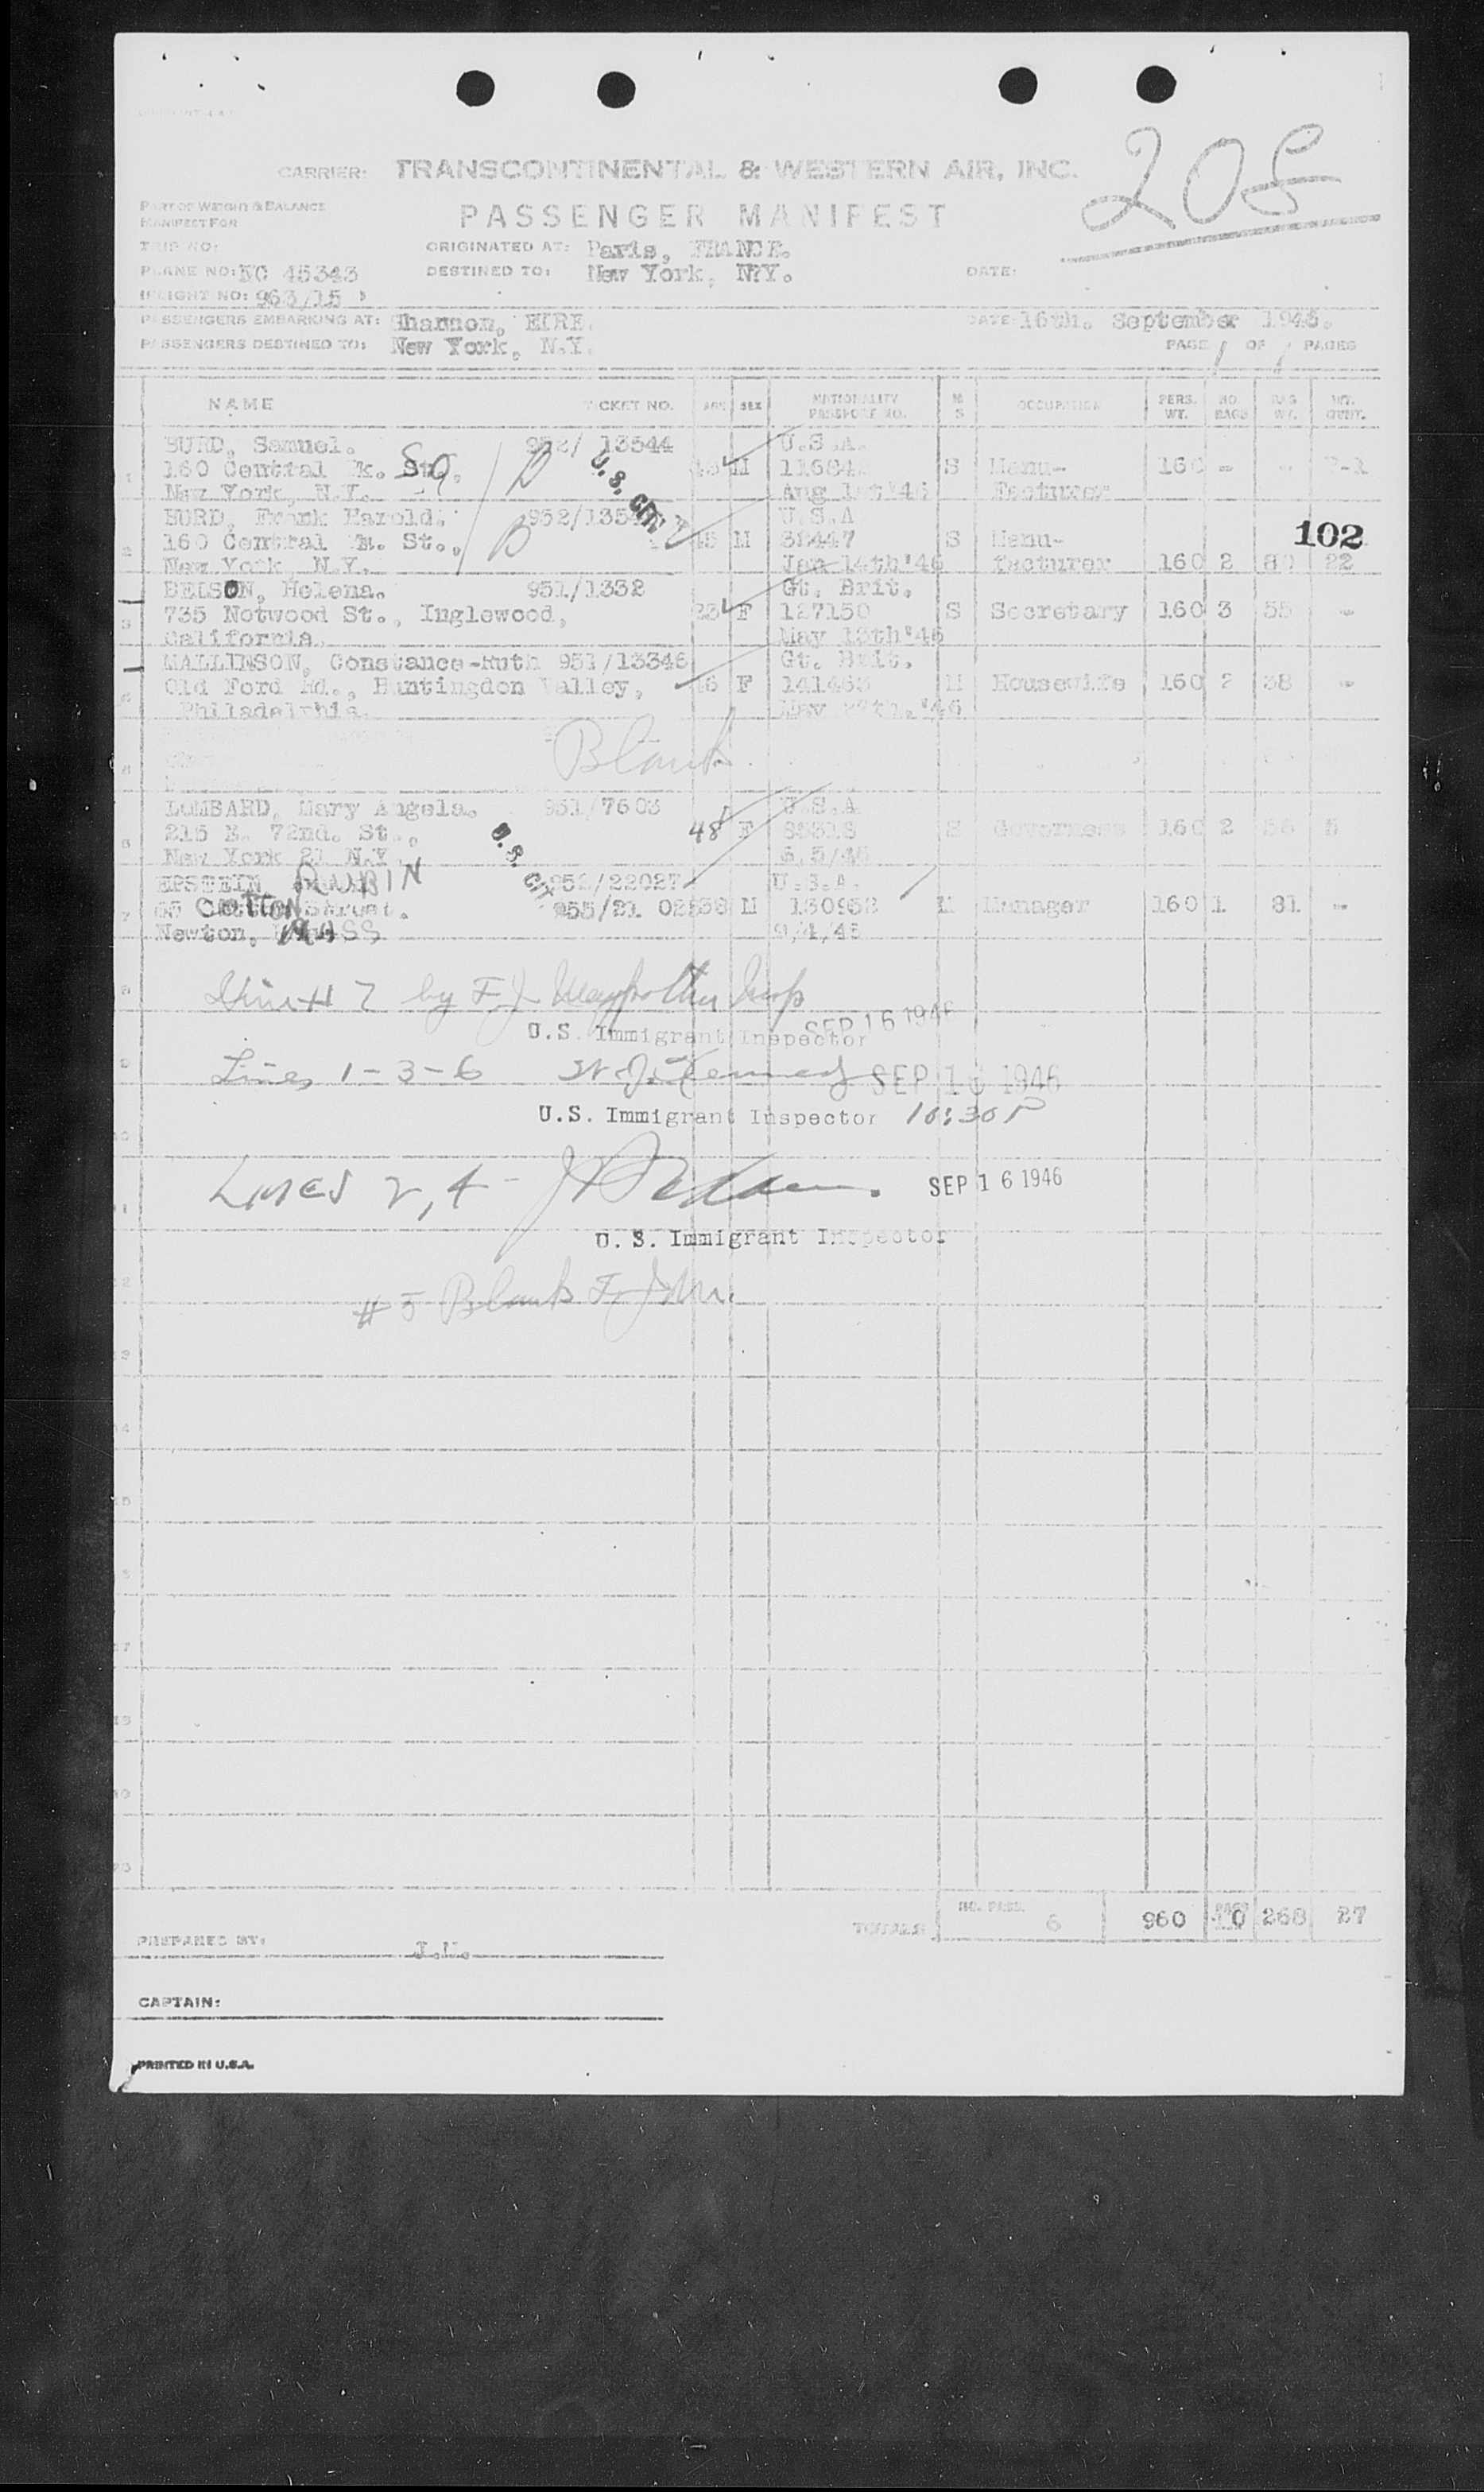 205
CARRIER: TRANSCONTINENTAL & WESTERN AIR, INC.
PART OF WEIGHT & BALANCE
MANIFEST FOR
PASSENGER MANIFEST
TRIP NO:
ORIGINATED AT: Paris, FRANCE.
PLANE NO: NC 45343
DESTINED TO: New York, N.Y.
DATE:
FLIGHT NO: 963/15
PASSENGERS EMBARKING AT: Shannon, EIRE.
DATE 16th. September 1946.
PASSENGERS DESTINED TO: New York, N.Y.
PAGE 1 OF 1 PAGES
NAME TICKET NO. AGE SEX NATIONALITY PASSPORT NO. M S OCCUPATION PERS. WT. NO. BAGS BAG WT. WT. OVWT.
BURD, Samuel. 952/ 13544 U.S.A.
1 160 Central Pk. St. So. M S Manu- 160 - -
New York, N.Y. U.S. CIT. Aug 1st'46 facturer
BURD, Frank Harold. U.S.A
2 160 Central Pk. St., 45 M 38447 S Manu- 102
New York, N.Y. Jan 14th'46 facturer 160 2 80 22
BELSON, Helena. 951/1332 Gt. Brit.
3 735 Notwood St., Inglewood, 23 F 127150 S Secretary 160 3 55 -
California. May 13th'46
MALLINSON, Constance-Ruth 951/13346 Gt. Brit.
4 Old Ford Rd., Huntingdon Valley, F 141463 M Housewife 160 2 38 -
Philadelphia. May 27th.'46
Blank
LOMBARD, Mary Angela. 951/7603 U.S.A
6 215 E. 72nd. St., 48 F S Governess 160 2 5
New York 21 N.Y. U.S. CIT.
EPSTEIN, RUBIN 952/22027 U.S.A.
7 COTTON Street. 38 M 130952 M Manager 160 1 81 -
Newton, MASS 9/4/46
#7 by F.J.
U.S. Immigrant Inspector SEP 16 1946
Lines 1-3-6 Kennedy SEP 16 1946
U.S. Immigrant Inspector 10:30 P
LINES 2, 4 - SEP 16 1946
U. S. Immigrant Inspector
#5 Blank
TOTALS NO. PASS. 6 960 10 268 27
PREPARED BY:
CAPTAIN:
PRINTED IN U.S.A.